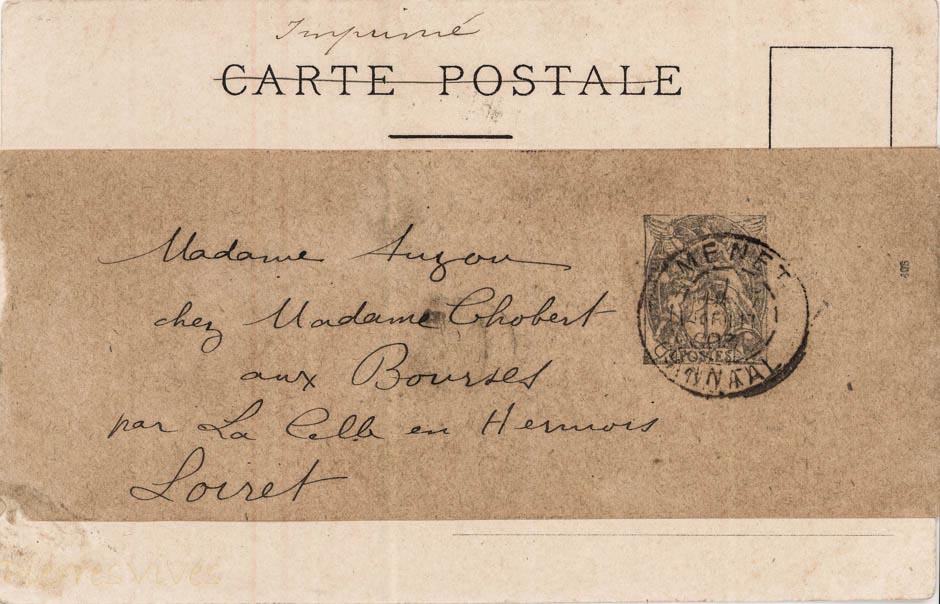 Imprimé
CARTE POSTALE
Madame Auzou
chez Madame Chobert
aux Bourses
par La Celle en Hermois
Loiret
MENET
POSTES
CANTAL
Pierres Vives